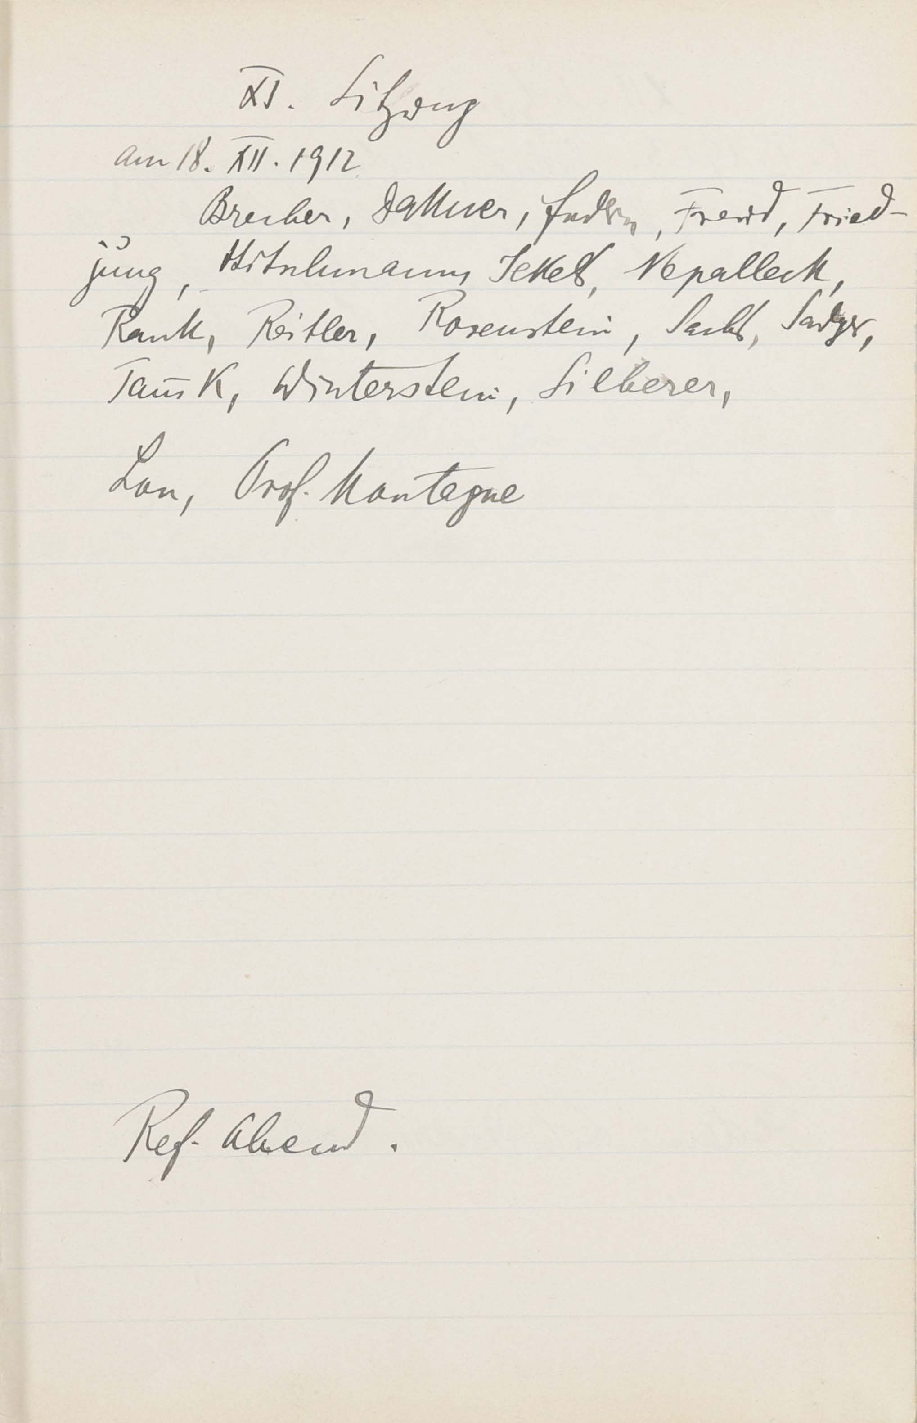 XI. Sitzung
am 18. XII. 1912
Brecher, Dattner, Federn, Freud, Fried-
jung, Hitschmann, Jekels, Nepalleck,
Rank, Reitler, Rosenstein, Sachs, Sadger,
Tausk, Winterstein, Silberer,
Lou, Prof. Montague
Ref. Abend.